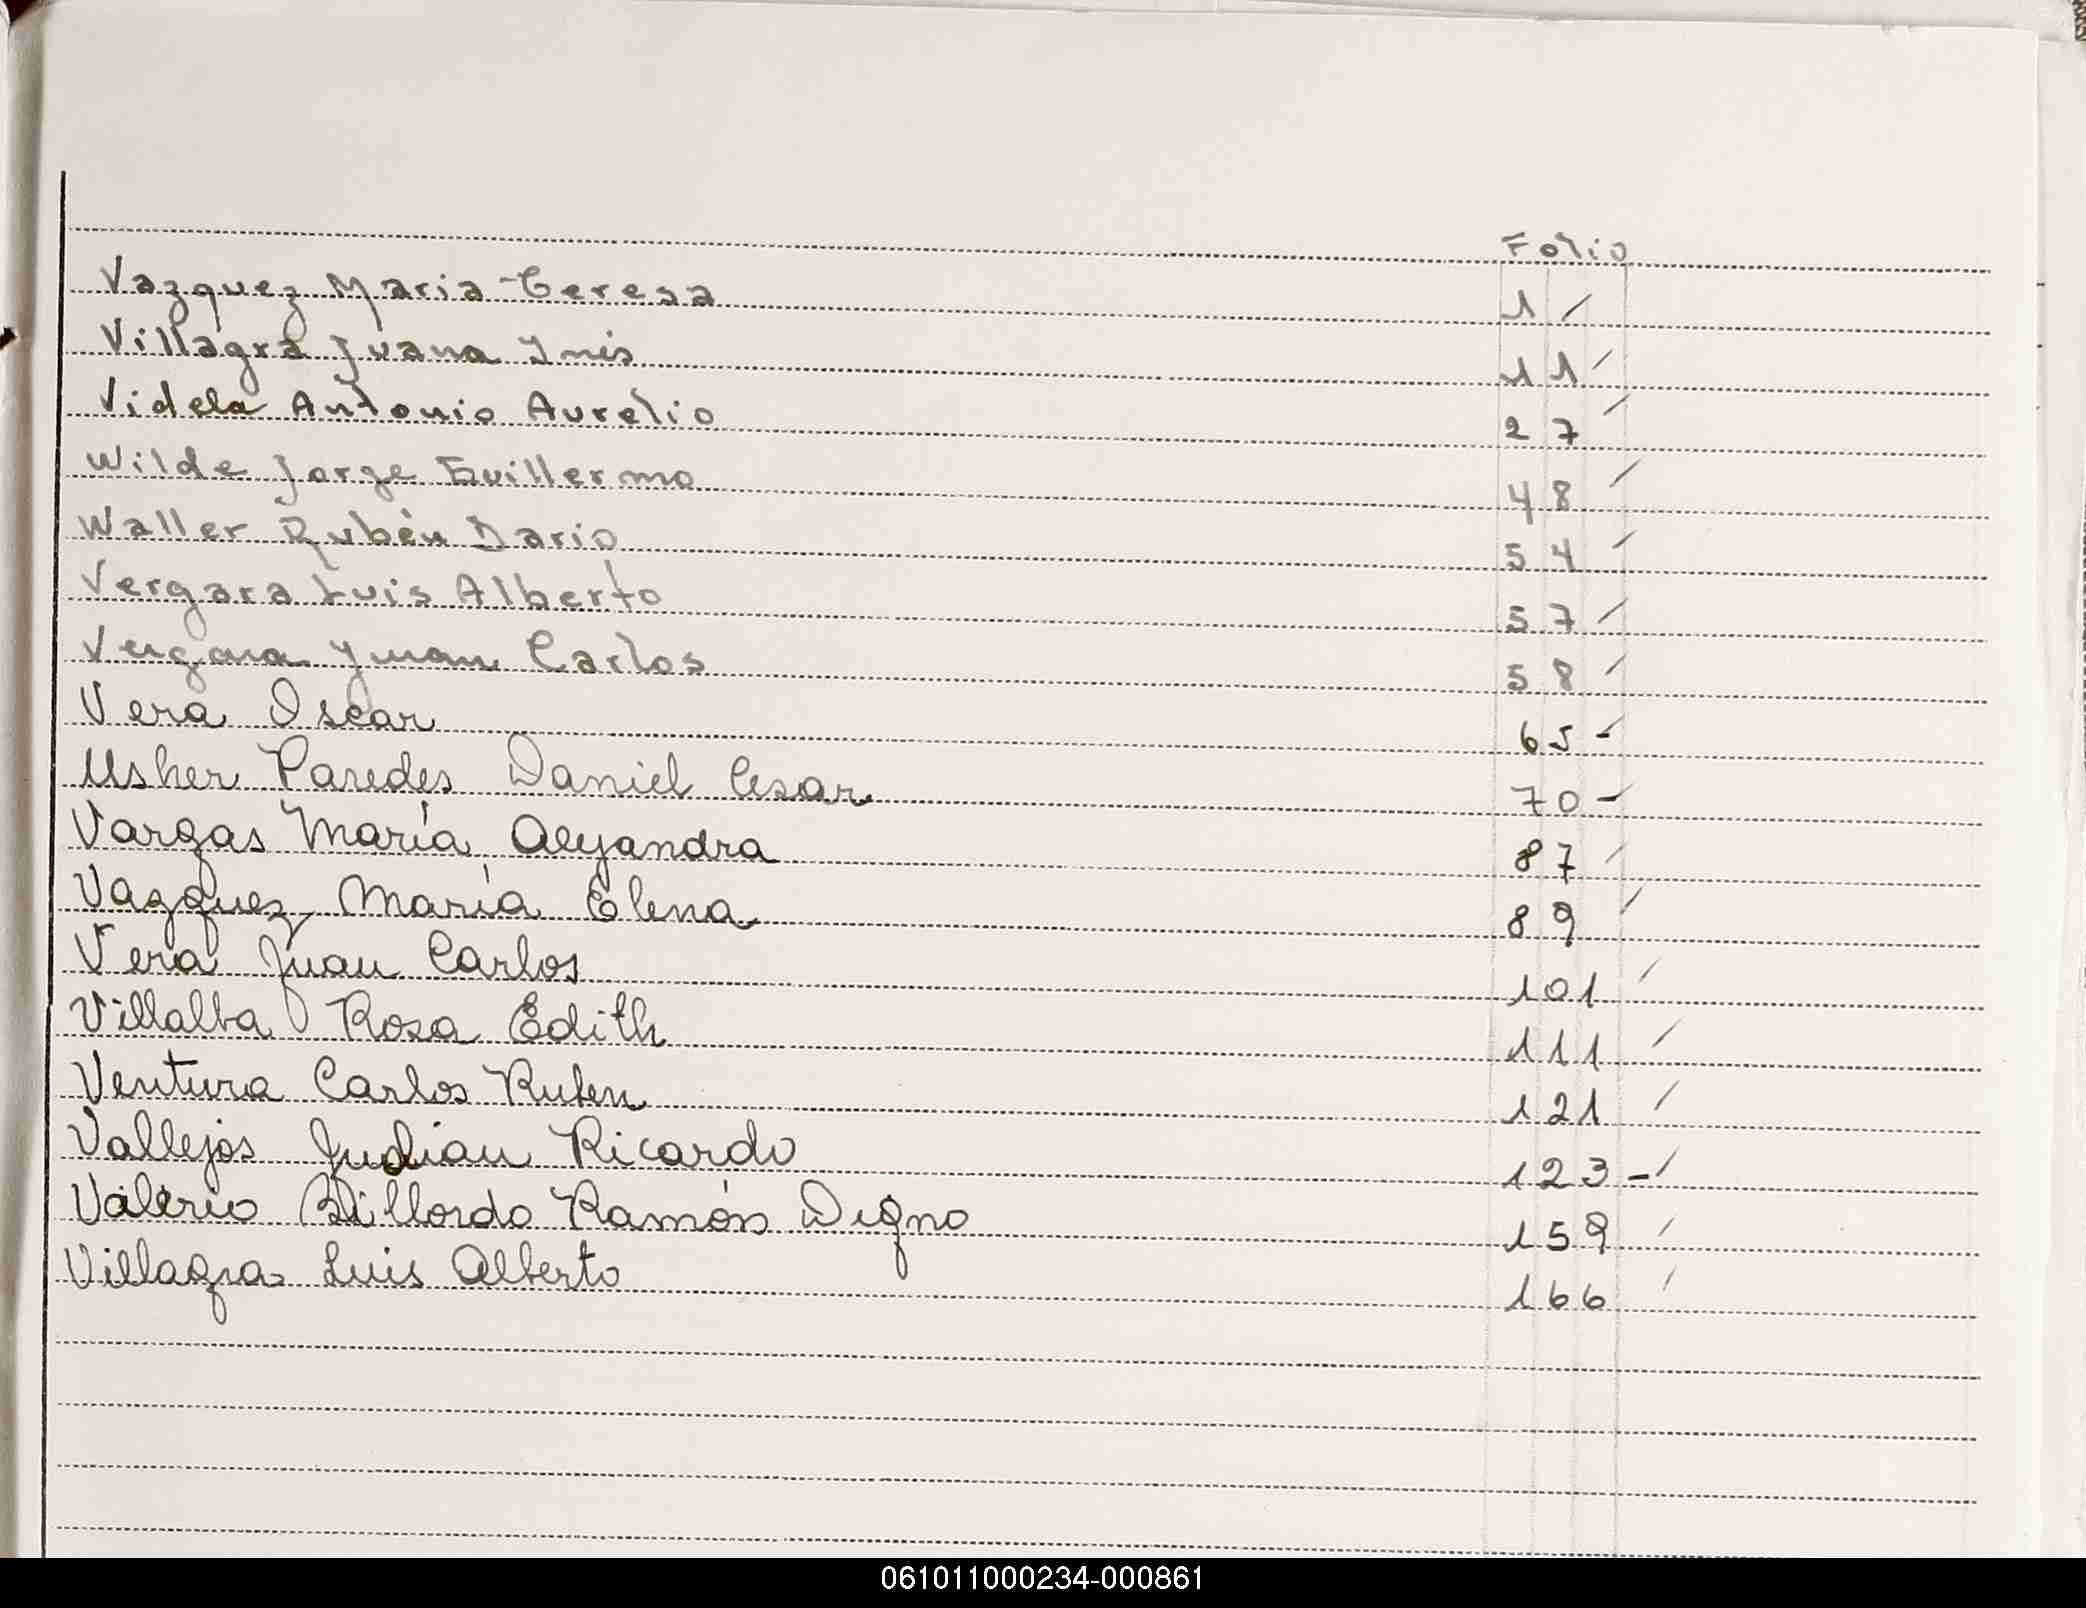 Folio
Vazquez Maria Teresa 1 /
Villagra Juana Ines 11 /
Videla Antonio Aurelio 27 /
Wilde Jorge Guillermo 48 /
Waller Rubén Dario 54 /
Vergara Luis Alberto 57 /
Vergara Juan Carlos 58 /
Vera Oscar 65 -
Usher Paredes Daniel Cesar 70 -
Vargas María Alejandra 87 /
Vazquez María Elena 89 /
Vera Juan Carlos 101 /
Villalba Rosa Edith 111 /
Ventura Carlos Ruben 121 /
Vallejos Ricardo 123 -/
Valerio Billordo Ramón Digno 159 /
Villagra Luis Alberto 166 /
061011000234-000861